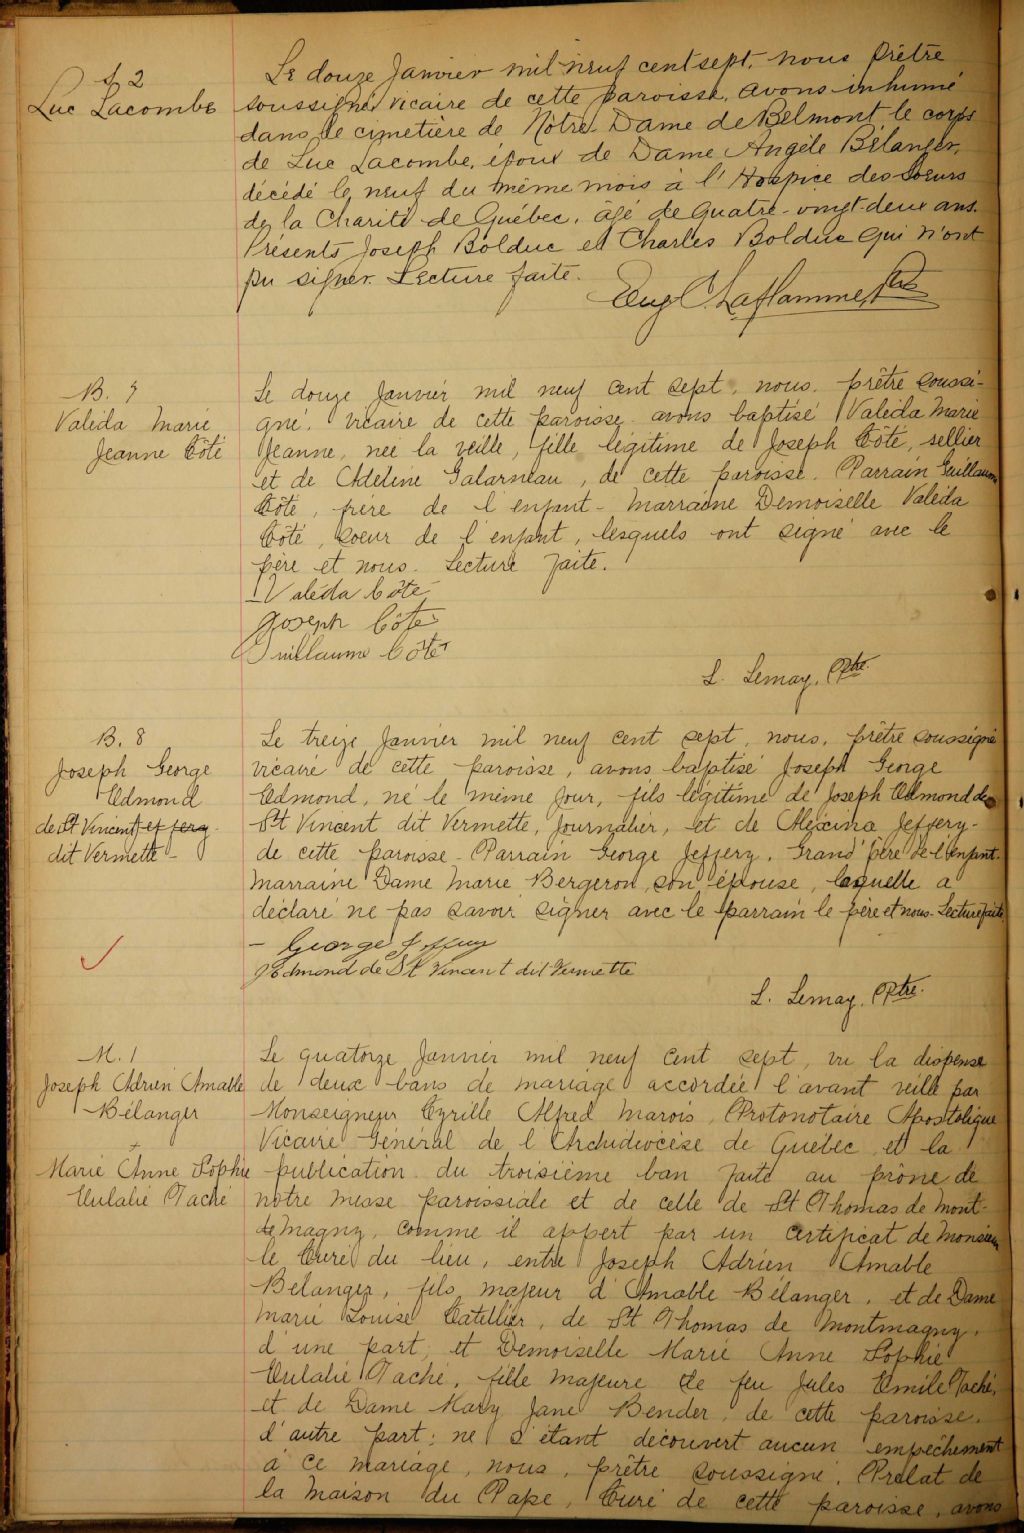 S 2
Luc Lacombe
Le douze Janvier mil neuf cent sept, nous Prêtre
soussigné vicaire de cette paroisse, avons inhumé
dans le cimetière de Nôtre Dame de Belmont, le corps
de Luc Lacombe, époux de Dame Angèle Bélanger,
décédé le neuf du même mois à l'Hospice des Soeurs
de la Charité de Québec, âgé de quatre-vingt-deux ans.
Présents Joseph Bolduc et Charles Bolduc qui n'ont
pu signer. Lecture faite.
Eug. C. Laflamme, Ptre
B. 7
Valéda Marie
Jeanne Côté
Le douze Janvier mil neuf cent sept, nous, prêtre soussi-
gné, vicaire de cette paroisse avons baptisé Valéda Marie
Jeanne, née la veille, fille légitime de Joseph Côté, sellier
et de Adeline Galarneau, de cette paroisse. Parrain Guillaume
Côté, frère de l'enfant - Marraine Demoiselle Valéda
Côté, soeur de l'enfant, lesquels ont signé avec le
père et nous. Lecture faite.
Valéda Côté
Joseph Côté
Guillaume Côté
L. Lemay, Ptre.
B. 8
Joseph George
Edmond
de St Vincent Jeffery
dit Vermette -
Le treize Janvier mil neuf cent sept, nous, prêtre soussigné
vicaire de cette paroisse, avons baptisé Joseph George
Edmond, né le même jour, fils légitime de Joseph Edmond de
St Vincent dit Vermette, Journalier, et de Alexina Jeffery-
de cette paroisse - Parrain George Jeffery, Grand'père de l'enfant.
Marraine Dame Marie Bergeron, son épouse, laquelle a
déclaré ne pas savoir signer avec le parrain le père et nous - Lecture faite
- George Jeffery
J Edmond de St Vincent dit Vermette
L. Lemay, Ptre.
M. 1
Joseph Adrien Amable
Bélanger
+
Marie Anne Sophie
Eulalie Taché
Le quatorze Janvier mil neuf cent sept, vu la dispense
de deux bans de mariage accordée l'avant veille par
Monseigneur Cyrille Alfred Marois, Protonotaire Apostolique
Vicaire Général de l'Archidiocèse de Québec et la
publication du troisième ban faite au prône de
notre messe paroissiale et de celle de St Thomas de Mont-
magny, comme il appert par un certificat de Monsieur
le Curé du lieu, entre Joseph Adrien Amable
Bélanger, fils majeur d'Amable Bélanger, et de Dame
Marie Louise Catellier, de St Thomas de Montmagny,
d'une part, et Demoiselle Marie Anne Sophie
Eulalie Taché, fille majeure de feu Jules Emile Taché,
et de Dame Mary Jane Bender, de cette paroisse,
d'autre part; ne s'étant découvert aucun empêchement
à ce mariage, nous, prêtre soussigné, Prélat de
la Maison du Pape, Curé de cette paroisse, avons